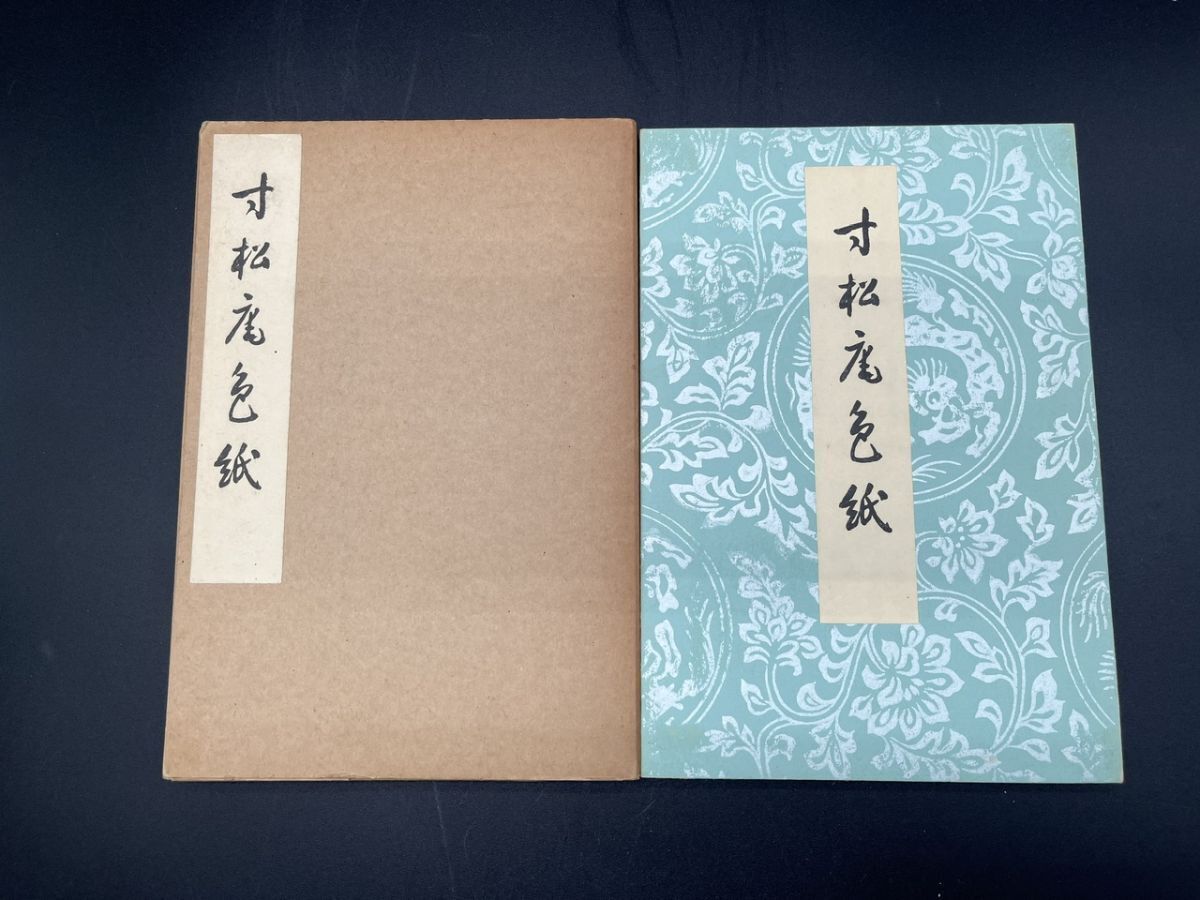 寸松庵色紙
寸松庵色紙